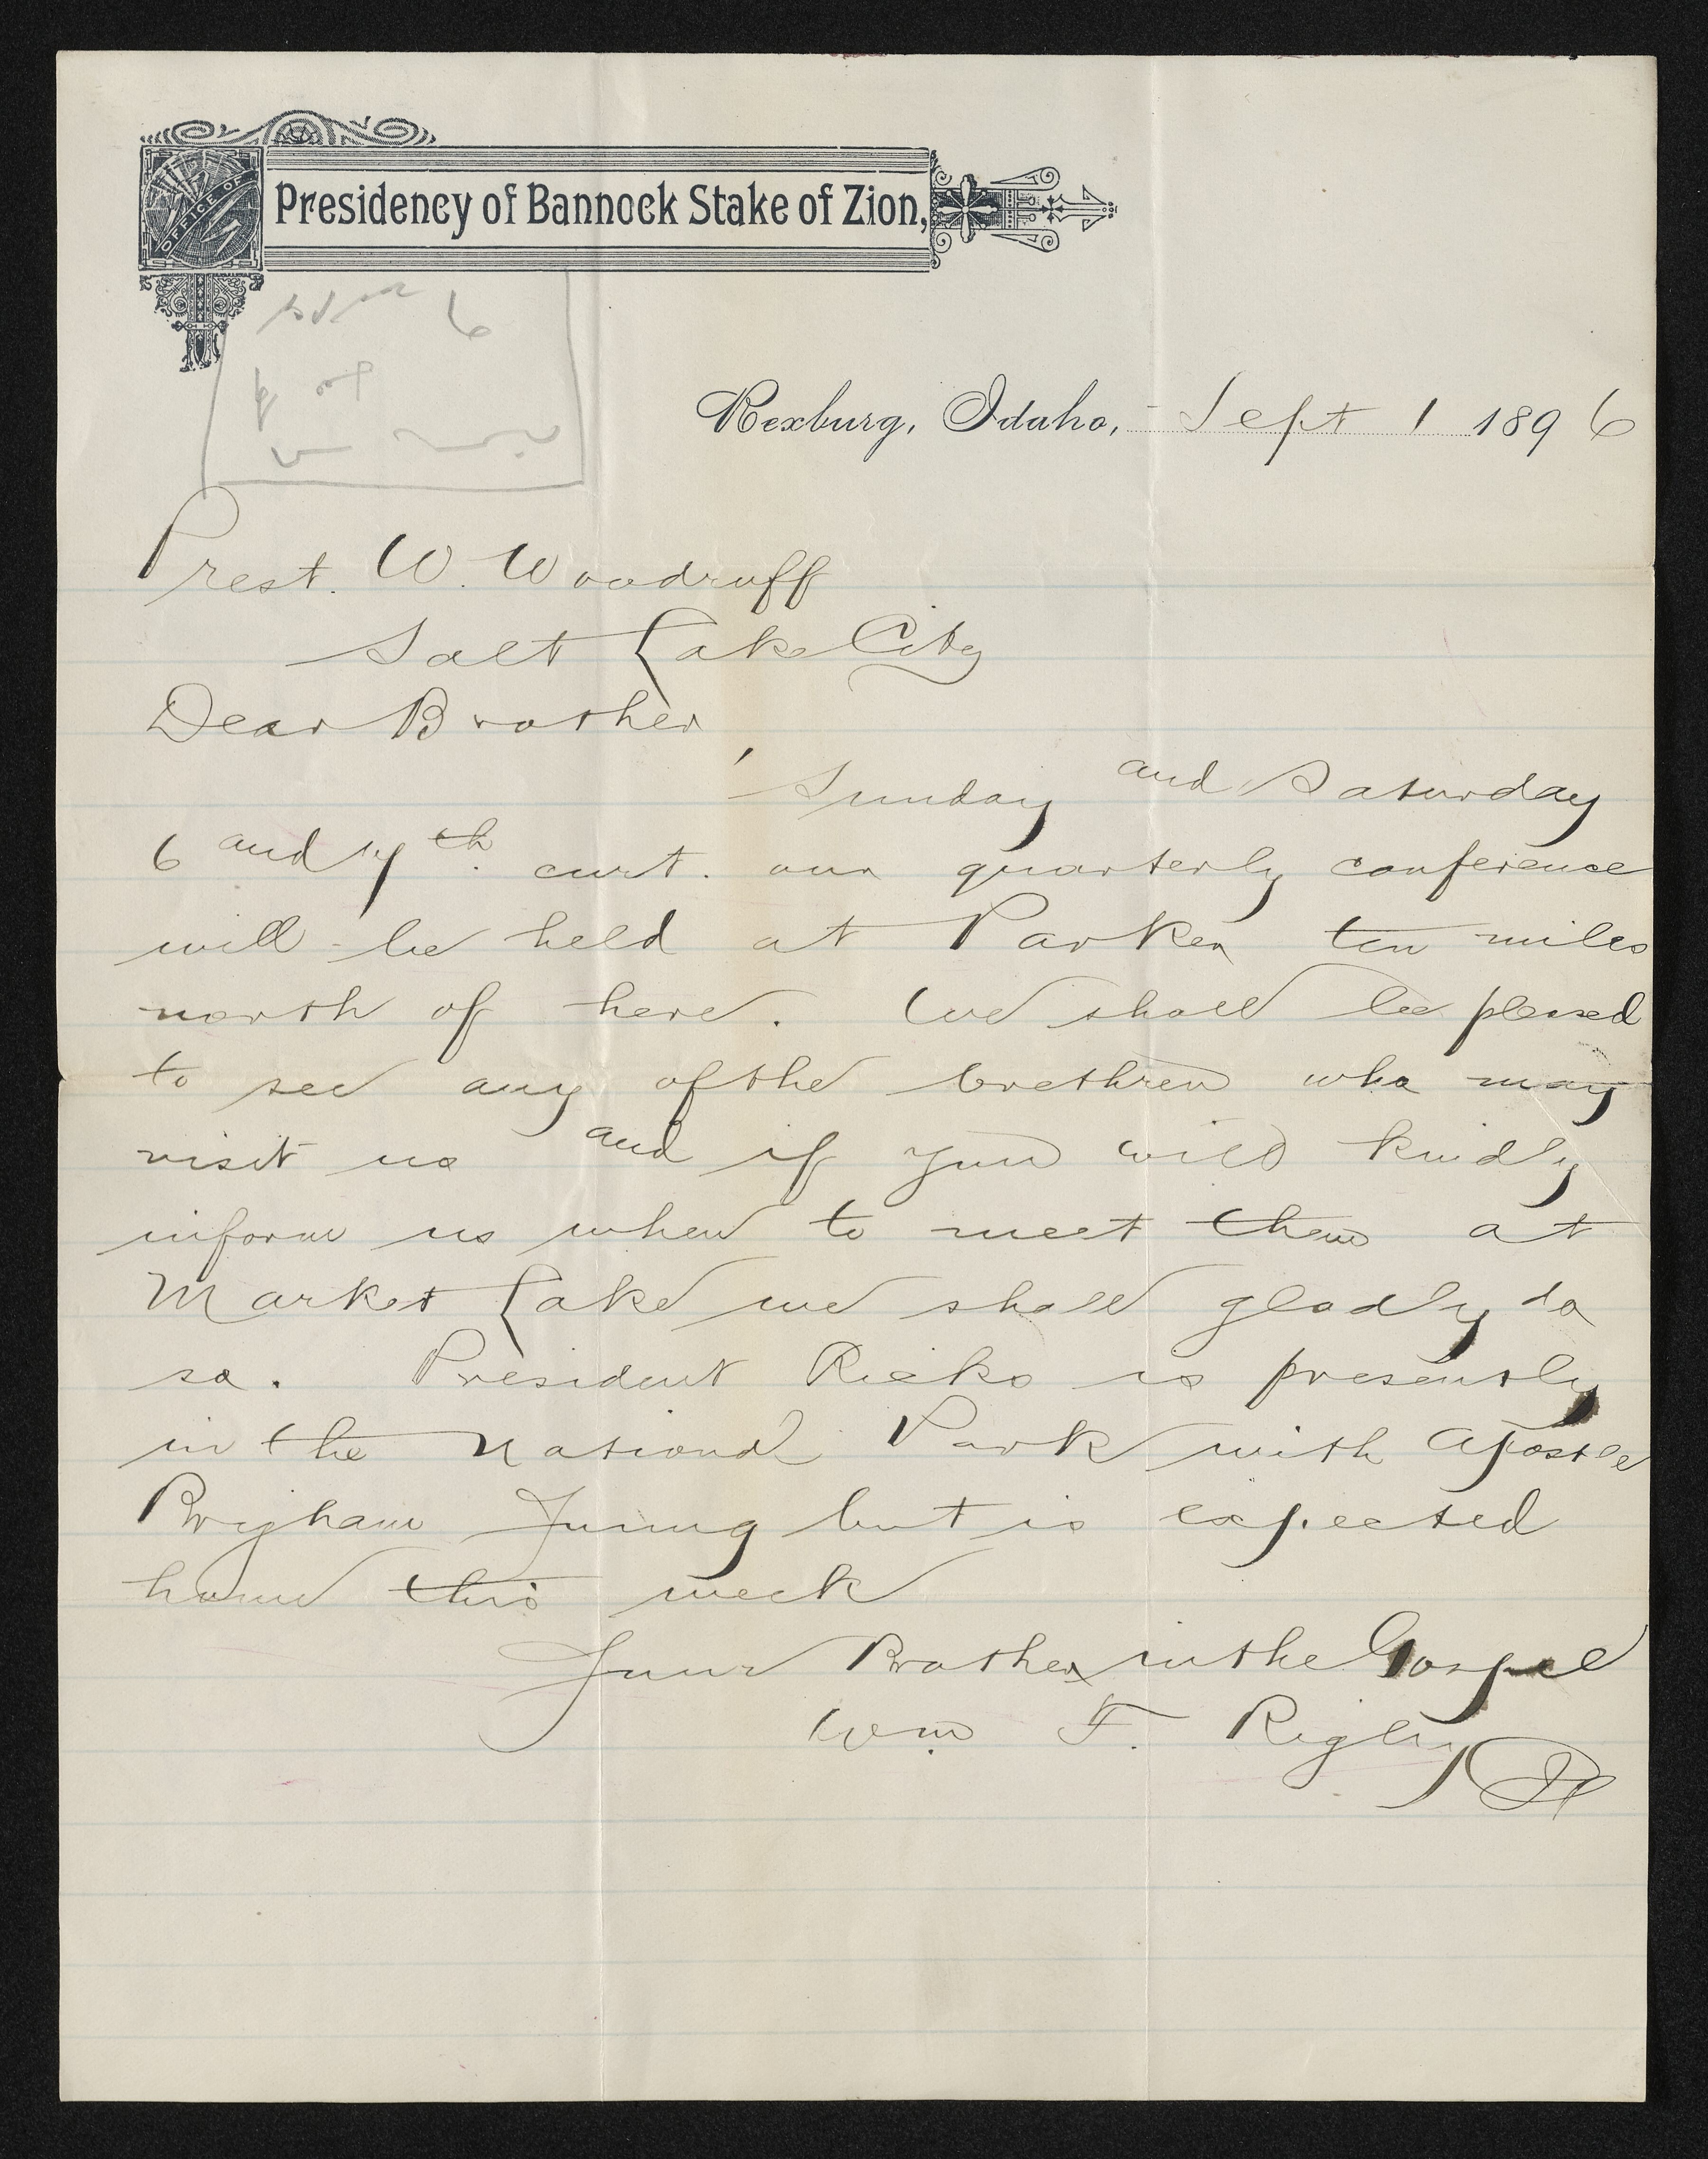 OFFICE OF
Presidency of Bannock Stake of Zion,
6
Rexburg, Idaho, Sept 1 1896
Prest. W. Woodruff
Salt Lake City
Dear Brother
Sunday and Saturday
6 and 7th curt. our quarterly conference
will be held at Parker ten miles
north of here. We shall be pleased
to see any of the brethren who may
visit us and if you will kindly
inform us when to meet them at
Market Lake we shall gladly do
so. President Ricks is presently
in the National Park with Apostle
Brigham Young but is expected
home this week
Your Brother in the Gospel
Wm F. Rigby